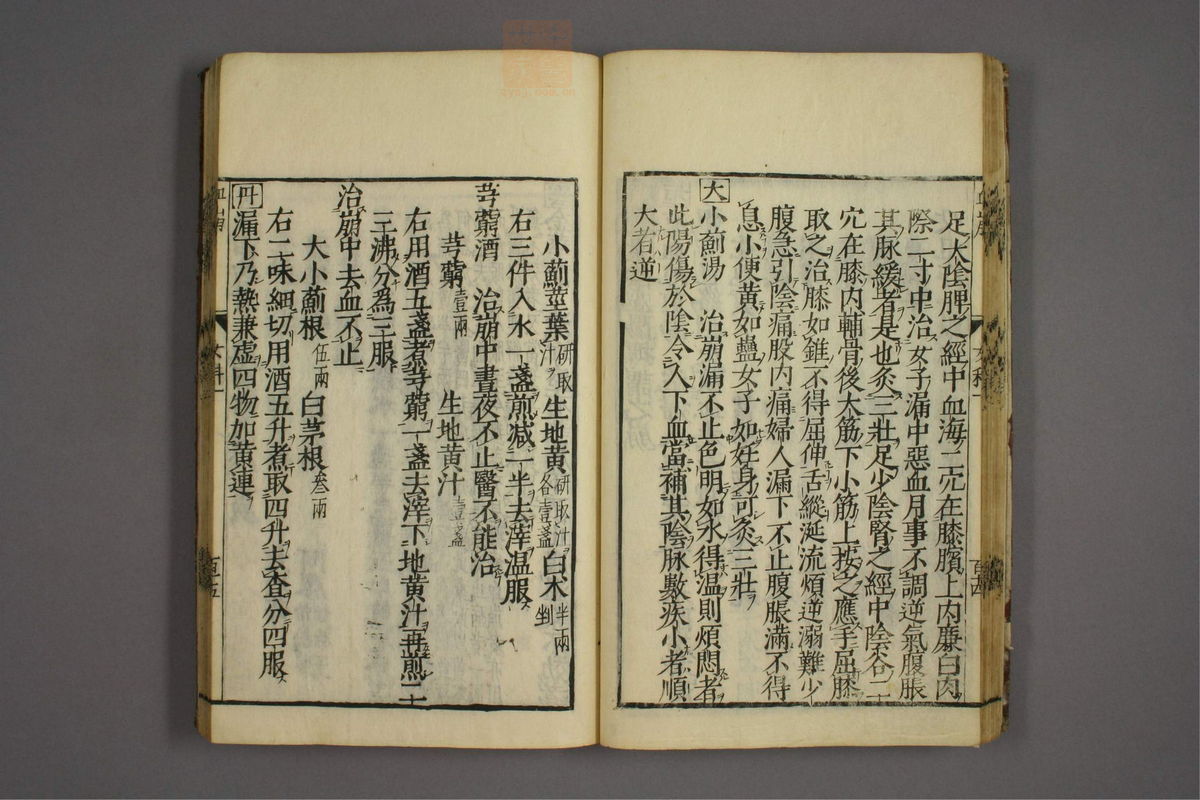 足太陰脾之經中血海二穴在膝臏上內廉白肉
際二寸中治女子漏中惡血月事不調逆氣腹脹
其脉緩者是也灸三壯足少陰腎之經中陰谷二
穴在膝內輔骨後大筋下小筋上按之應手屈膝
取之治膝如錐不得屈伸舌縱涎流煩逆溺難少
腹急引陰痛股内痛婦人漏下不止腹脹滿不得
息小便黃如蠱女子如妊身可灸三壯
大小薊湯 治崩漏不止色明如水得温則煩悶者
此陽傷於陰令人下血當補其陰脉數疾小者順
大者逆
小薊莖葉研取汁 生地黄研取汁各壹盞 白术半兩剉
右三件入水一盞煎减一半去滓温服
芎藭酒 治崩中晝夜不止醫不能治
芎藭壹兩 生地黄汁壹盞
右用酒五盞煮芎藭一盞去滓下地黄汁再煎二
三沸分爲三服
治崩中去血不止
大小薊根伍兩 白茅根叁兩
右二味細切用酒五升煮取四升去查分四服
丹漏下乃熱兼虚四物加黄連
女科一
百五